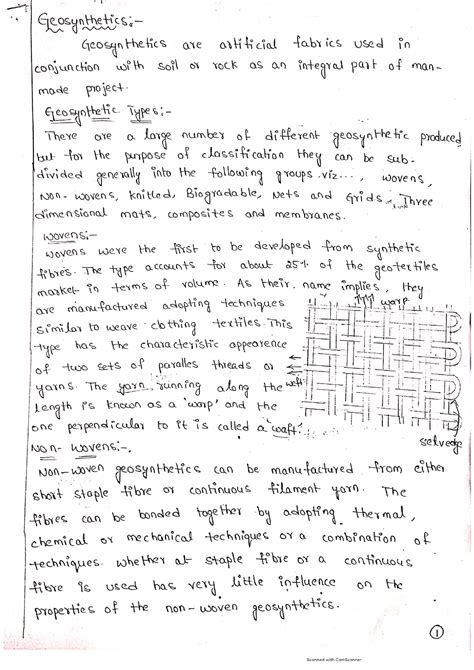 Geosynthetics:-
Geosynthetics are artificial fabrics used in
conjunction with soil or rock as an integral part of man-
made project.
Geosynthetic Types:-
There are a large number of different geosynthetic produced
but for the purpose of classification they can be sub-
divided generally into the following groups viz..., wovens,
Non-wovens, knitted, Biogradable, Nets and Grids, Three
dimensional mats, composites and membranes.
Wovens:-
Wovens were the first to be developed from synthetic
fibres. The type accounts for about 25% of the geotextiles
market in terms of volume. As their name implies, they
are manufactured adopting techniques
warp
similar to weave clothing textiles. This
type has the characteristic appearence
of two sets of paralles threads or
yarns. The yarn, running along the
weft
length is known as a 'warp' and the
one perpendicular to it is called a 'waft'.
selvedge
Non-Wovens:-
Non-woven geosynthetics can be manufactured from either
short staple fibre or continuous filament yarn. The
fibres can be bonded together by adopting thermal,
chemical or mechanical techniques or a combination of
techniques. whether at staple fibre or a continuous
fibre is used has very little influence on the
properties of the non-woven geosynthetics.
1
Scanned with CamScanner